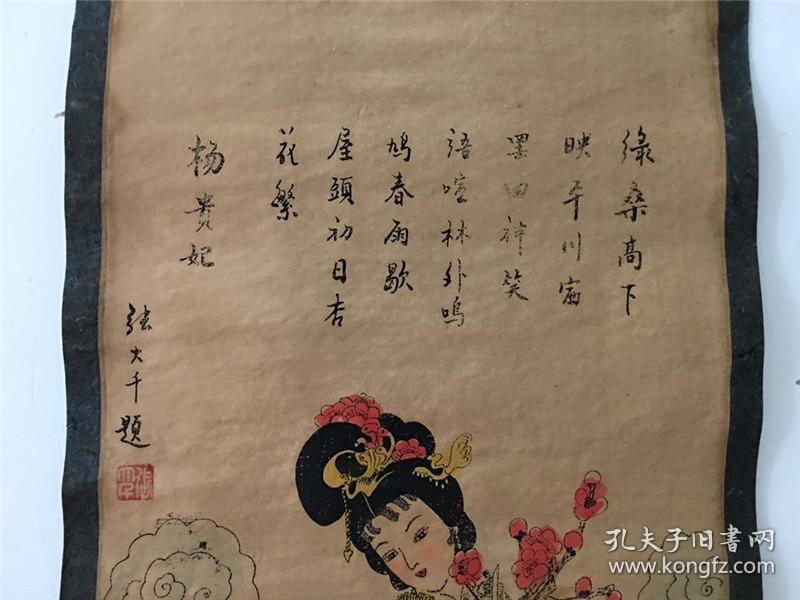 绿桑高下
映平川
罢田神笑
語喧林外鳴
鳩春雨歇
屋頭初日杏
花繁
杨貴妃
張大千題
孔夫子旧書网
www.kongfz.com